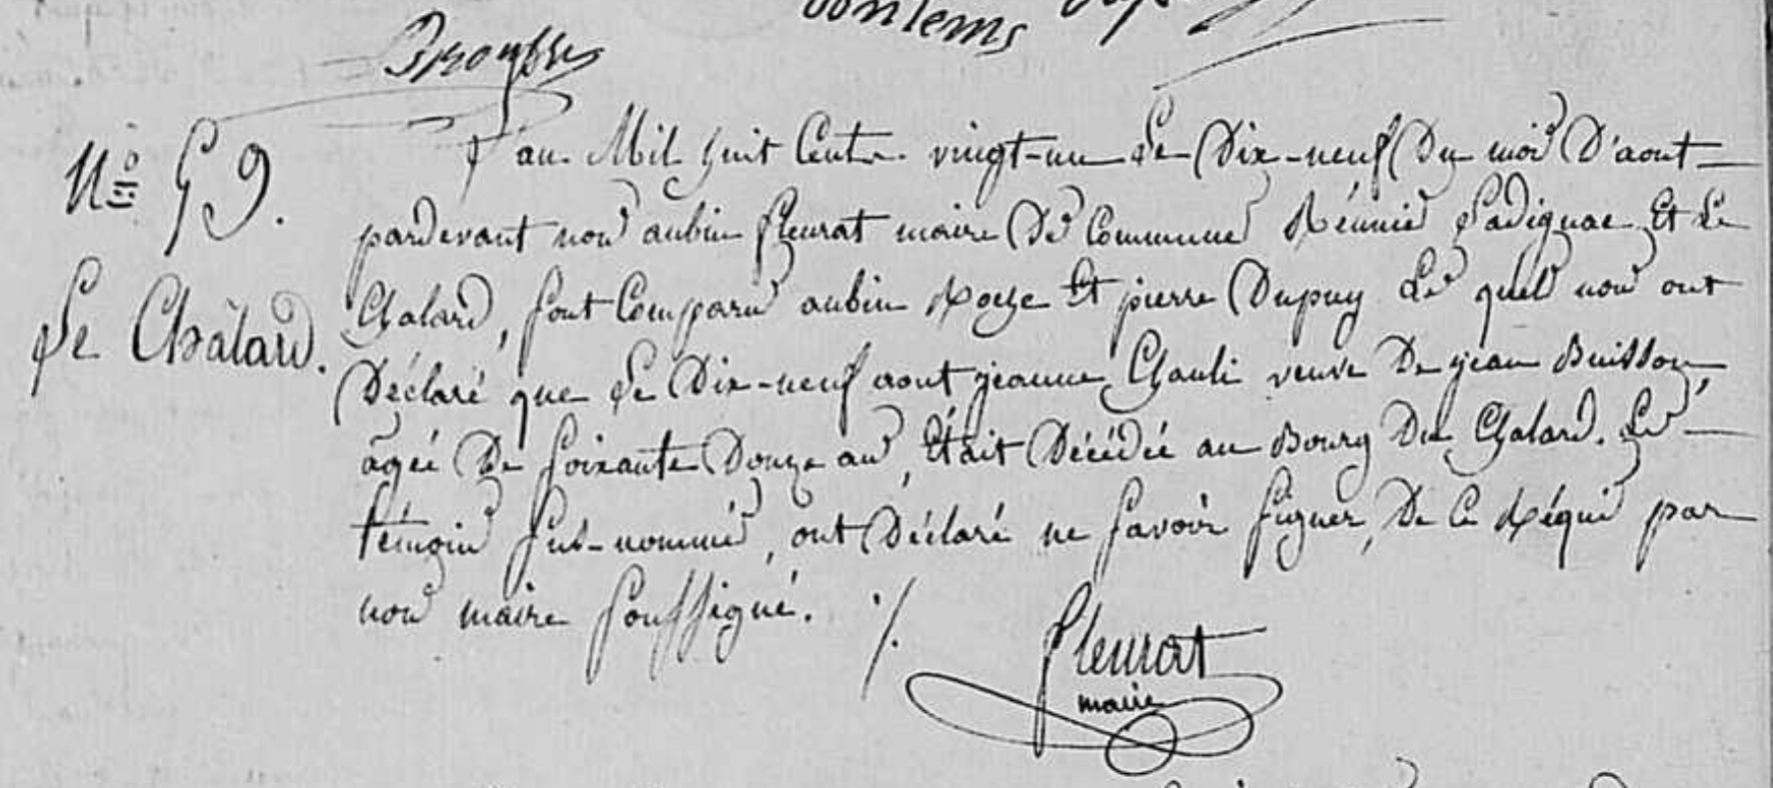 bontems
N° 59.
Le Châlard.
L'an Mil huit Cent vingt-un Le Dix-neuf Du mois D'aout
pardevant nous aubin fleurat maire Des Communes Réunies Ladignac Et Le
Chalard, sont Comparus aubin Roche Et pierre Dupuy Les quels nous ont
Déclaré que Le Dix-neuf aout jeanne Chauli veuve De jean Buisson,
agée De soixante Douze ans, Etait Décédée au Bourg Du Chalard. Les
témoins sus-nommés, ont Déclaré ne savoir signer, De Ce Réquis par
nous maire soussigné. ./.
fleurat
maire